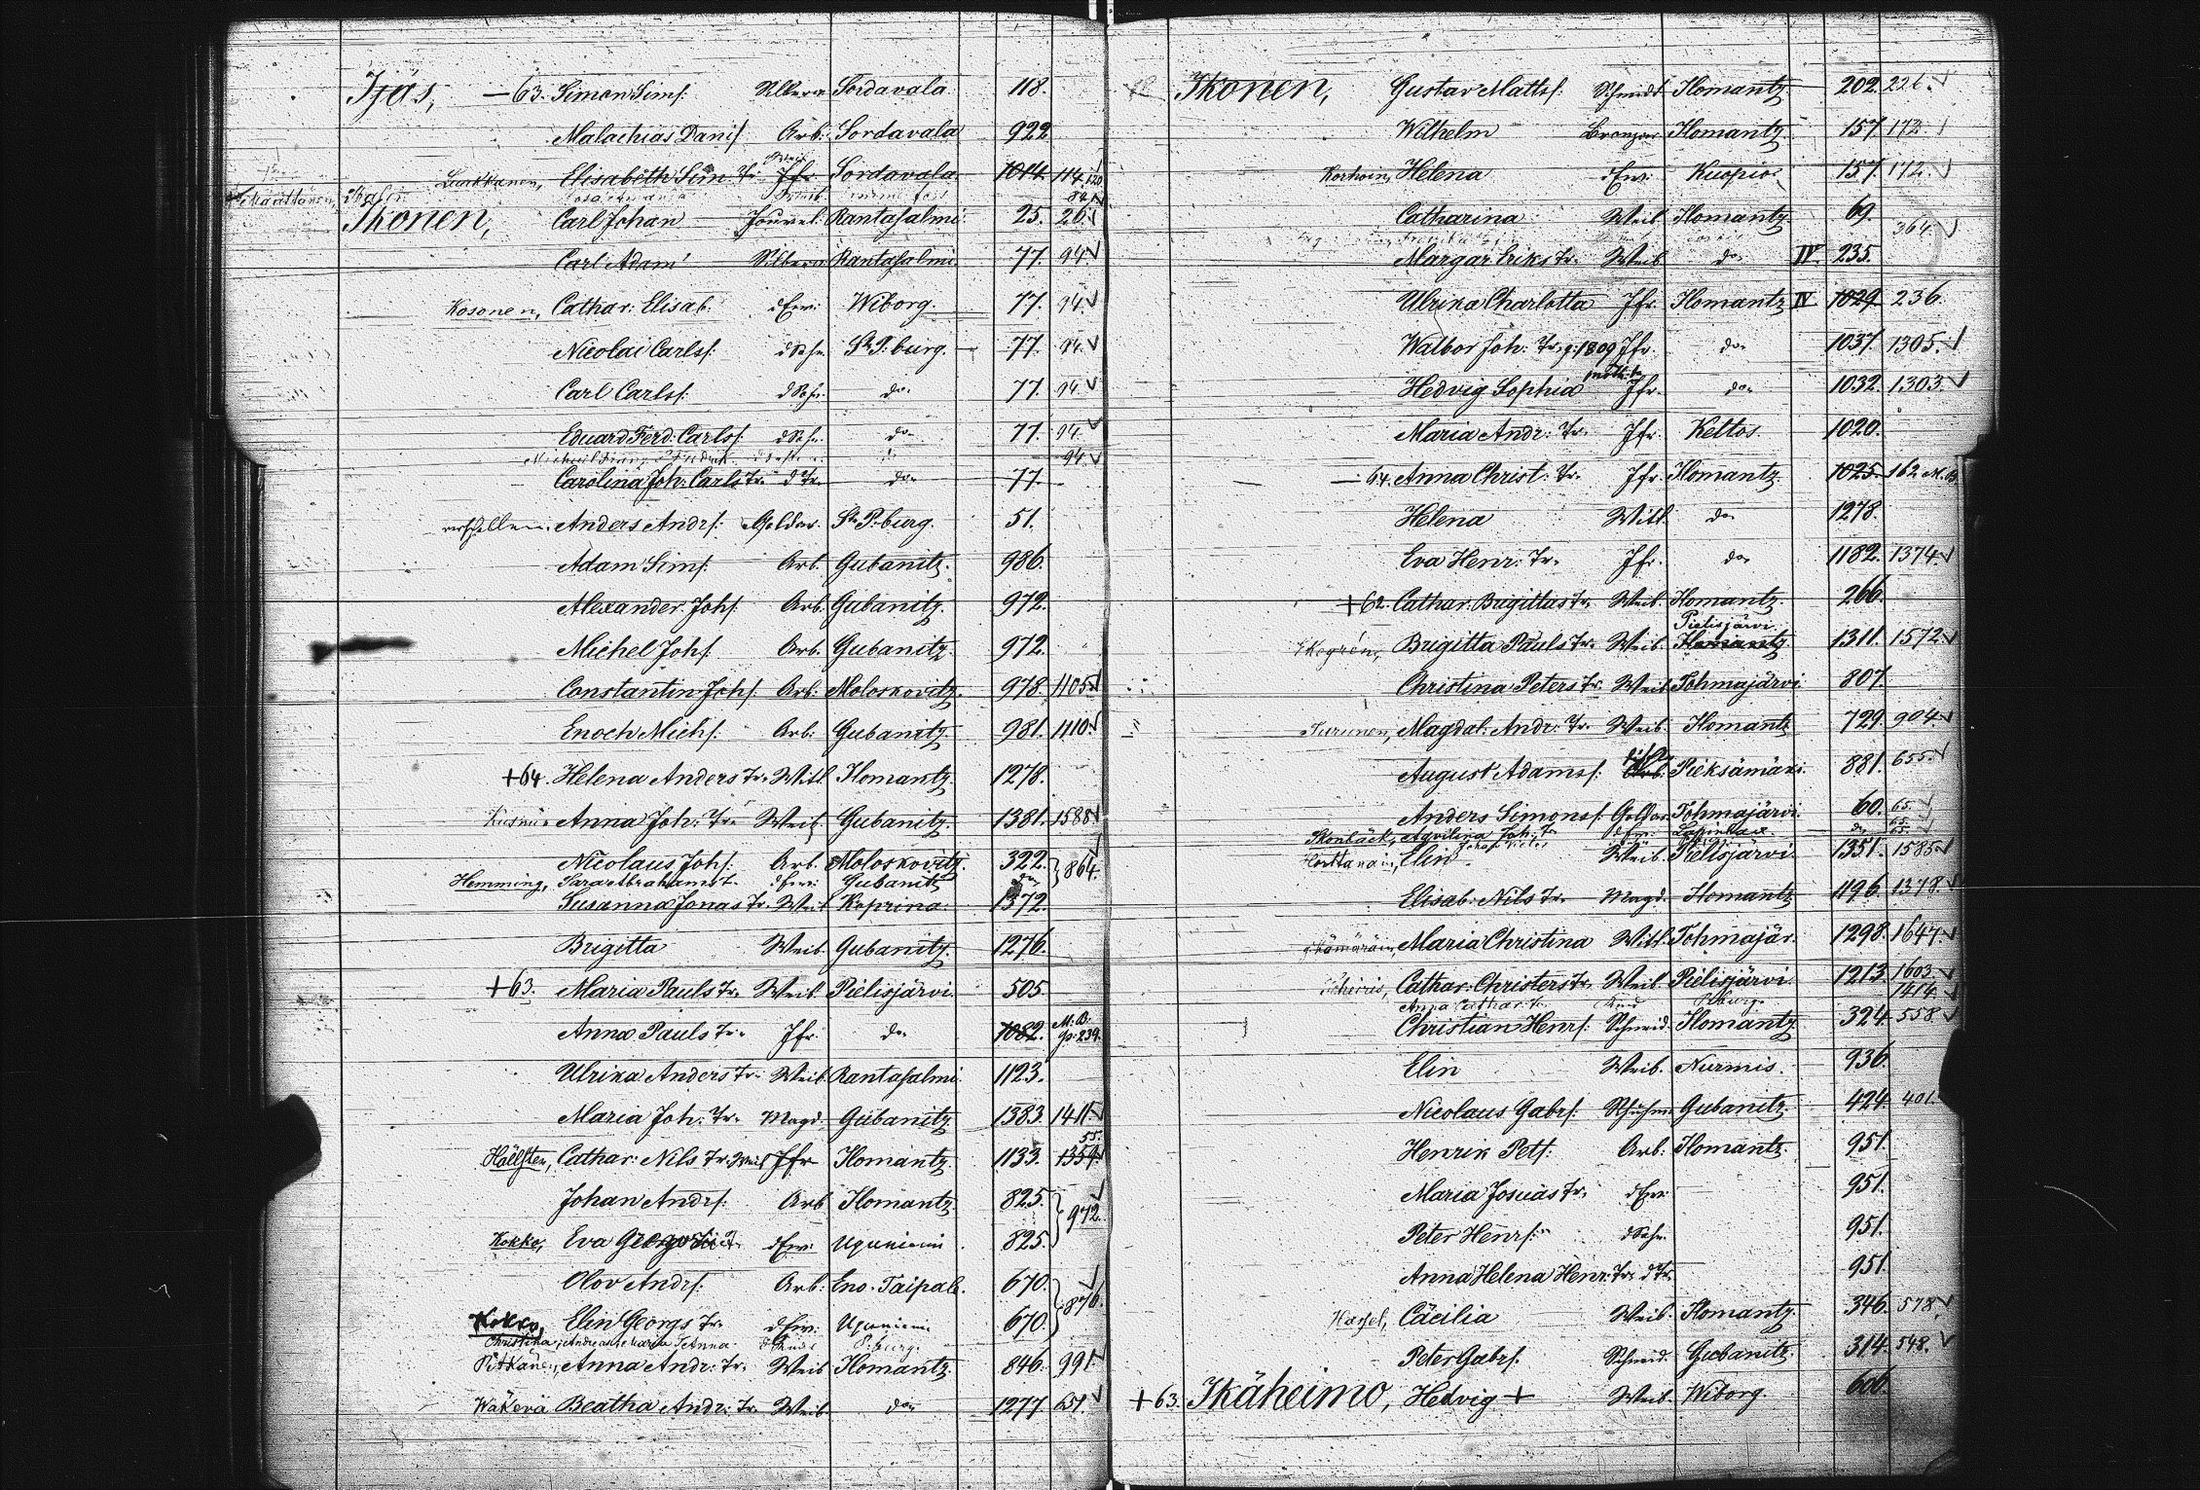 Ijäs, —63. Simon Sims: Sordavala 118.
Malachias Danis: Arb: Sordavala 922
Luukkanen, Elisabeth Sim Tr. Jfr Sordavala 1014. 114.
Ikonen, Carl Johan Rantasalmi 25. 26.
Carl Adam Rantasalmi. 77. 94.
Kosonen, Cathar: Elisab. dEw: Wiborg. 77. 94.
Nicolai Carls: dSohn St P:burg. 77. 94.
Carl Carls: dSohn do 77. 94.
Eduard Ferd: Carls: dSohn do 77. 94.
94.
Carolina Joh: Carls Tr. dTr. do 77.
verschollen. Anders Andrs: Goldar. St P:burg. 51.
Adam Sims: Arb. Gubanitz. 986.
Alexander Johs: Arb. Gubanitz. 972.
Michel Johs: Arb. Gubanitz. 972.
Constantin Johs: Arb: Moloskovitz. 978. 1105.
Enoch Michs: Arb: Gubanitz 981. 1110.
+64. Helena Anders Tr. Witt Ilomantz. 1278.
Anna Joh: Tr. Weib Gubanitz. 1381. 1588
Nicolaus Johs: Arb. Moloskovitz. 322. } 864.
Hemming, Sara Abrahamst. dEw: Gubanitz do
Susanna Jonas Tr. Weib Koprina. 1372
Brigitta Weib. Gubanitz. 1276.
+63. Maria Pauls Tr. Weib. Pielisjärvi. 505.
Anna Pauls Tr. Jfr. do 1082. M:B: 239.
Ulrika Anders Tr. Weib. Rantasalmi. 1123.
Maria Joh: Tr. Magd. Gubanitz. 1383. 1411
55.
Hällsten, Cathar: Nils Tr. Weib Jfr Ilomantz. 1133. 1359.
Johan Andrs: Arb. Ilomantz. 825. } 972.
Kokko, Eva dEw: Uguniemi 825.
Olov Andrs: Arb: Eno. Taipale. 670. } 876.
Kokko, Elin Georgs Tr. dEw: Uguniemi 670.
Christina, Andreas, Maria, Anna P:burg.
Pitkänen, Anna Andr: Tr. Weib Ilomantz. 846. 991.
Wäkevä Beatha Andr: Tr. Weib. do 1277 651.
Ikonen, Gustav Matts: Schmidt Ilomantz 202. 226.
Wilhelm Ilomantz. 157. 172.
Korhoin, Helena dEw: Kuopio. 157. 172.
Catharina Weib Ilomantz. 69.
364.
Margar: Eriks Tr. Weib do IV. 235.
Ulrika Charlotta Jfr. Ilomantz IV 1029. 236.
Walbor Joh: Tr. g: 1809 Jfr. do 1037. 1305.
Hedvig Sophia Jfr. do 1032. 1303.
Maria Andr: Tr. Jfr. Keltos. 1020.
—64. Anna Christ: Tr. Jfr. Ilomantz. 1025. 162 M.B.
Helena Witt. do 1278.
Eva Henr: Tr. Jfr. do 1182. 1374.
+62. Cathar: Brigittas Tr. Weib. Ilomantz. 266.
Pielisjärvi
Brigitta Pauls Tr. Weib. Ilomantz 1311. 1572
Christina Peters Tr. Weib Tohmajärvi. 807.
Turunen, Magdal: Andr: Tr. Weib. Ilomantz 729. 904.
August Adams: Arb: Pieksämäki. 881. 655.
Anders Simons: Goldar. Tohmajärvi. 60. 65.
Skonbäck, Aqvilina Joh: T. dEw: do 65.
Elin Weib. Pielisjärvi. 1351. 1585.
Elisab: Nils Tr. Magd. Ilomantz 1196. 1378.
Maria Christina Witt. Tohmajär. 1298. 1647.
Cathar: Christers Tr. Weib Pielisjärvi. 1213. 1603.
Anna Cathar: T. Kind P:burg. 1414.
Christian Henrs: Schmid. Ilomantz. 324. 558
Elin Weib. Nurmis. 936.
Nicolaus Gabrs: Gubanitz 424. 401.
Henrik Pets: Arb: Ilomantz. 951.
Maria Josuas Tr. dEw: 951.
Peter Henrs: dSohn. 951.
Anna Helena Henr: Tr. dTr. 951.
Hassel, Cäcilia Weib. Ilomantz. 346. 578.
Peter Gabrs. Schmid. Gubanitz. 314. 548.
+63. Ikäheimo, Hedvig + Weib. Wiborg. 606.